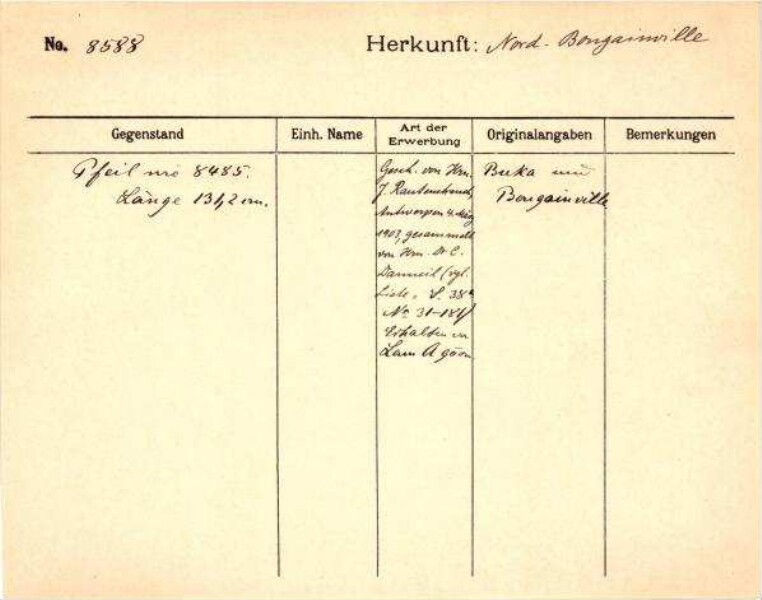 No. 8588
Herkunft: Nord-Bougainville
Gegenstand
Einh. Name
Art der Erwerbung
Originalangaben
Bemerkungen
Pfeil wie 8485.
Länge 131,2 cm.
Gesch. von Hrn.
J. Rautenstrauch,
Antwerpen 4. März
1903, gesammelt
von Hrn. Dr C.
Danneil (vgl.
Liste, S. 38
No 31-181)
Erhalten von
Lam A
Buka und
Bougainville